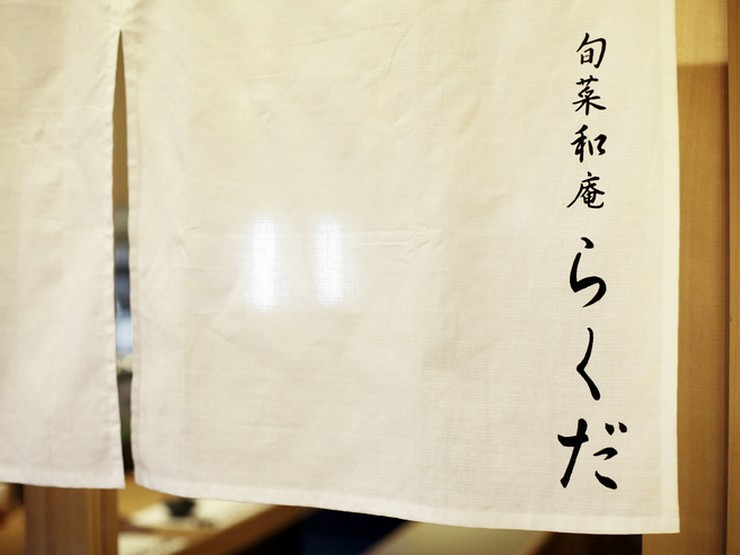 旬菜和庵らくだ